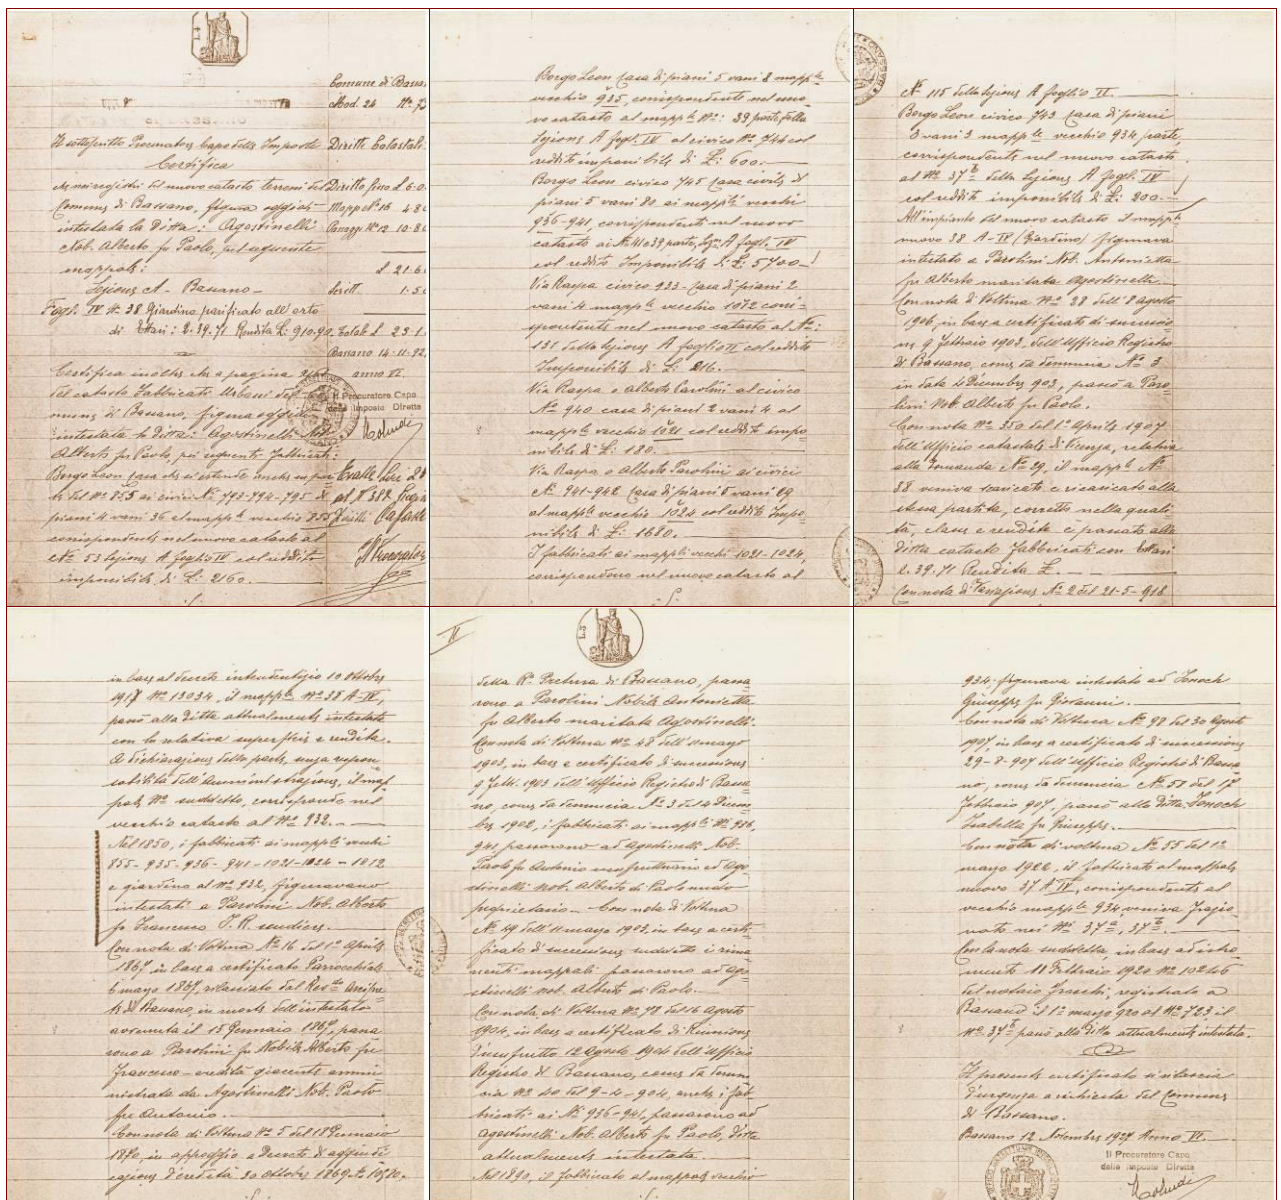 Comune di Bassa
Mod. 24 N° 73
Il sottoscritto Procuratore Capo delle Imposte
Certifica
che nei registri del nuovo catasto terreni del
Comune di Bassano, figura oggidì
intestata la Ditta: Agostinelli
Nob. Alberto fu Paolo, pel seguente
mappale:
Sezione A - Bassano -
Fogl. IV N° 38 Giardino parificato all'orto
di Ettari: 2.39.71 Rendita L: 910.90
Certifica inoltre che a pagina
del catasto Fabbricati Urbani del
comune di Bassano, figura oggidì
intestata la Ditta: Agostinelli Nob.
Alberto fu Paolo pei seguenti fabbricati:
Borgo Leon casa che si estende anche sopra
il N° 855 ai civici N° 793-794-795 di
piani 4 vani 36 al mapp.le vecchio 855
corrispondente nel nuovo catasto al
N° 53 Sezione A foglio IV col reddito
imponibile di L: 2160.
Diritti Catastali:
Diritto fisso L 6.0
Mapp. N° 16 4.8
Passaggi N° 12 10.8
L 21.6
Scritt. 1.5
Totale L 23.1
Bassano 14-11-92
anno VI.
Il Procuratore Capo
delle Imposte Dirette
Borgo Leon casa di piani 5 vani 8 mapp.le
vecchio 935, corrispondente nel nuo-
vo catasto al mapp.le N°: 39 parte, della
Sezione A fogl. IV al civico N° 744 col
reddito imponibile di L: 600.
Borgo Leon civico 745 casa civile di
piani 5 vani 20 ai mapp.li vecchi
936-941, corrispondenti nel nuovo
catasto ai N° 41 e 39 parte, Sez. A fogl. IV
col reddito Imponibile di L: 5700-
Via Raspa civico 933 - casa di piani 2
vani 4 mapp.le vecchio 1072 corri-
spondente nel nuovo catasto al N°:
131 della Sezione A foglio II col reddito
Imponibile di L: 216.
Via Raspa o Alberto Parolini al civico
N° 940 casa di piani 2 vani 4 al
mapp.le vecchio 1021 col reddito impo-
nibile di L: 180.
Via Raspa o Alberto Parolini ai civici
N° 941-942 casa di piani 5 vani 29
al mapp.le vecchio 1024 col reddito Impo-
nibile di L: 1680.
I fabbricati ai mapp.li vecchi 1021-1024,
corrispondono nel nuovo catasto al
N° 115 della Sezione A foglio II.
Borgo Leon civico 743 casa di piani
3 vani 3 mapp.le vecchio 934 parte,
corrispondente nel nuovo catasto
al N° 37 b della Sezione A fogl. IV
col reddito imponibile di L: 200-
All'impianto del nuovo catasto il mapp.le
nuovo 38 A-IV (Giardino) figurava
intestato a Parolini Nob. Antonietta
fu Alberto maritata Agostinelli.
Con nota di Voltura N° 28 dell'8 agosto
1906, in base a certificato di successio-
ne 9 febbraio 1903, dell'Ufficio Registro
di Bassano, come da denuncia N° 3
in data 4 Dicembre 903, passò a Paro-
lini Nob. Alberto fu Paolo.
Con nota N° 350 del 1° Aprile 1907
dell'Ufficio catastale di Vicenza, relativa
alla domanda N° 29, il mapp.le N°
38 veniva scaricato e ricaricato alla
stessa partita, corretto nella quali-
tà, classe e rendita e passato alla
Ditta catasto fabbricati con Ettari
2.39.71 Rendita L.
Con nota di Variazione N° 2 del 21-5-918
in base al decreto intendentizio 10 Ottobre
1917 N° 13034, il mapp.le N° 38 A-IV,
passò alla Ditta attualmente intestata
con la relativa superficie e rendita.
A dichiarazione della parte, senza respon-
sabilità dell'amministrazione, il map-
pale N° suddetto, corrisponde nel
vecchio catasto al N° 932.
Nel 1850, i fabbricati ai mapp.li vecchi
855-935-936-941-1021-1024-1212
e giardino al N° 932, figuravano
intestati a Parolini Nob. Alberto
fu Francesco
Con nota di Voltura N° 16 del 1° Aprile
1867 in base a certificato Parrocchiale
6 marzo 1867, rilasciato dal Rev.
di Bassano, in morte dell'intestato
avvenuta il 15 Gennaio 1867, passa
rono a Parolini fu Nobile Alberto fu
Francesco - eredità giacente ammi
nistrata da Agostinelli Nob. Paolo
fu Antonio.
Con nota di Voltura N° 5 del 18 Gennaio
1870, in appoggio a Decreto di aggiudi
cazione d'eredità 30 Ottobre 1869
II
della R.a Pretura di Bassano, passa
rono a Parolini Nobile Antonietta
fu Alberto maritata Agostinelli.
Con nota di Voltura N° 48 dell' marzo
1903, in base a certificato di successione
9 Febb. 1903 dell'Ufficio Registro di Bassa-
no, come da denuncia N° 3 del 4 Dicem-
bre 1902, i fabbricati ai mapp.li N° 936,
941, passarono ad Agostinelli Nob.
Paolo fu Antonio usufruttuario ed Ago-
stinelli Nob. Alberto di Paolo nudo
proprietario - Con nota di Voltura
N° 49 dell' marzo 1903, in base a certi-
ficato di successione suddetto i rima-
nenti mappali passarono ad Ago-
stinelli Nob. Alberto di Paolo.
Con nota di Voltura N° 78 del 16 Agosto
1904, in base a certificato di Riunione
d'usufrutto 12 Agosto 1904 dell'Ufficio
Registro di Bassano, come da denun-
cia N° 40 del 9-4-904, anche i fab-
bricati ai N° 936-941, passarono ad
Agostinelli Nob. Alberto fu Paolo, Ditta
attualmente intestata.
Nel 1890, il fabbricato al mappale vecchio
934, figurava intestato ad Jonoch
Giuseppe fu Giovanni.
Con nota di Voltura N° 98 del 30 Agosto
1907, in base a certificato di successione
29-8-907 dell'Ufficio Registro di Bassa-
no, come da denuncia N° 57 del 17
Febbraio 907, passò alla Ditta Jonoch
Isabella fu Giuseppe.
Con nota di voltura N° 55 del 12
marzo 1922, il fabbricato al mappale
nuovo 37 A IV, corrispondente al
vecchio mapp.le 934, veniva frazio-
nato nei N° 37 a, 37 b.
Con la nota suddetta, in base ad istro-
mento 11 Febbraio 1920 N° 10246
del notaio Fraschi, registrato a
Bassano il 1° marzo 920 al N° 723 il
N° 37 b passò alla Ditta attualmente intestata.
Il presente certificato si rilascia
d'urgenza a richiesta del Comune
di Bassano.
Bassano 12 Novembre 1927 Anno VI.
Il Procuratore Capo
delle Imposte Dirette